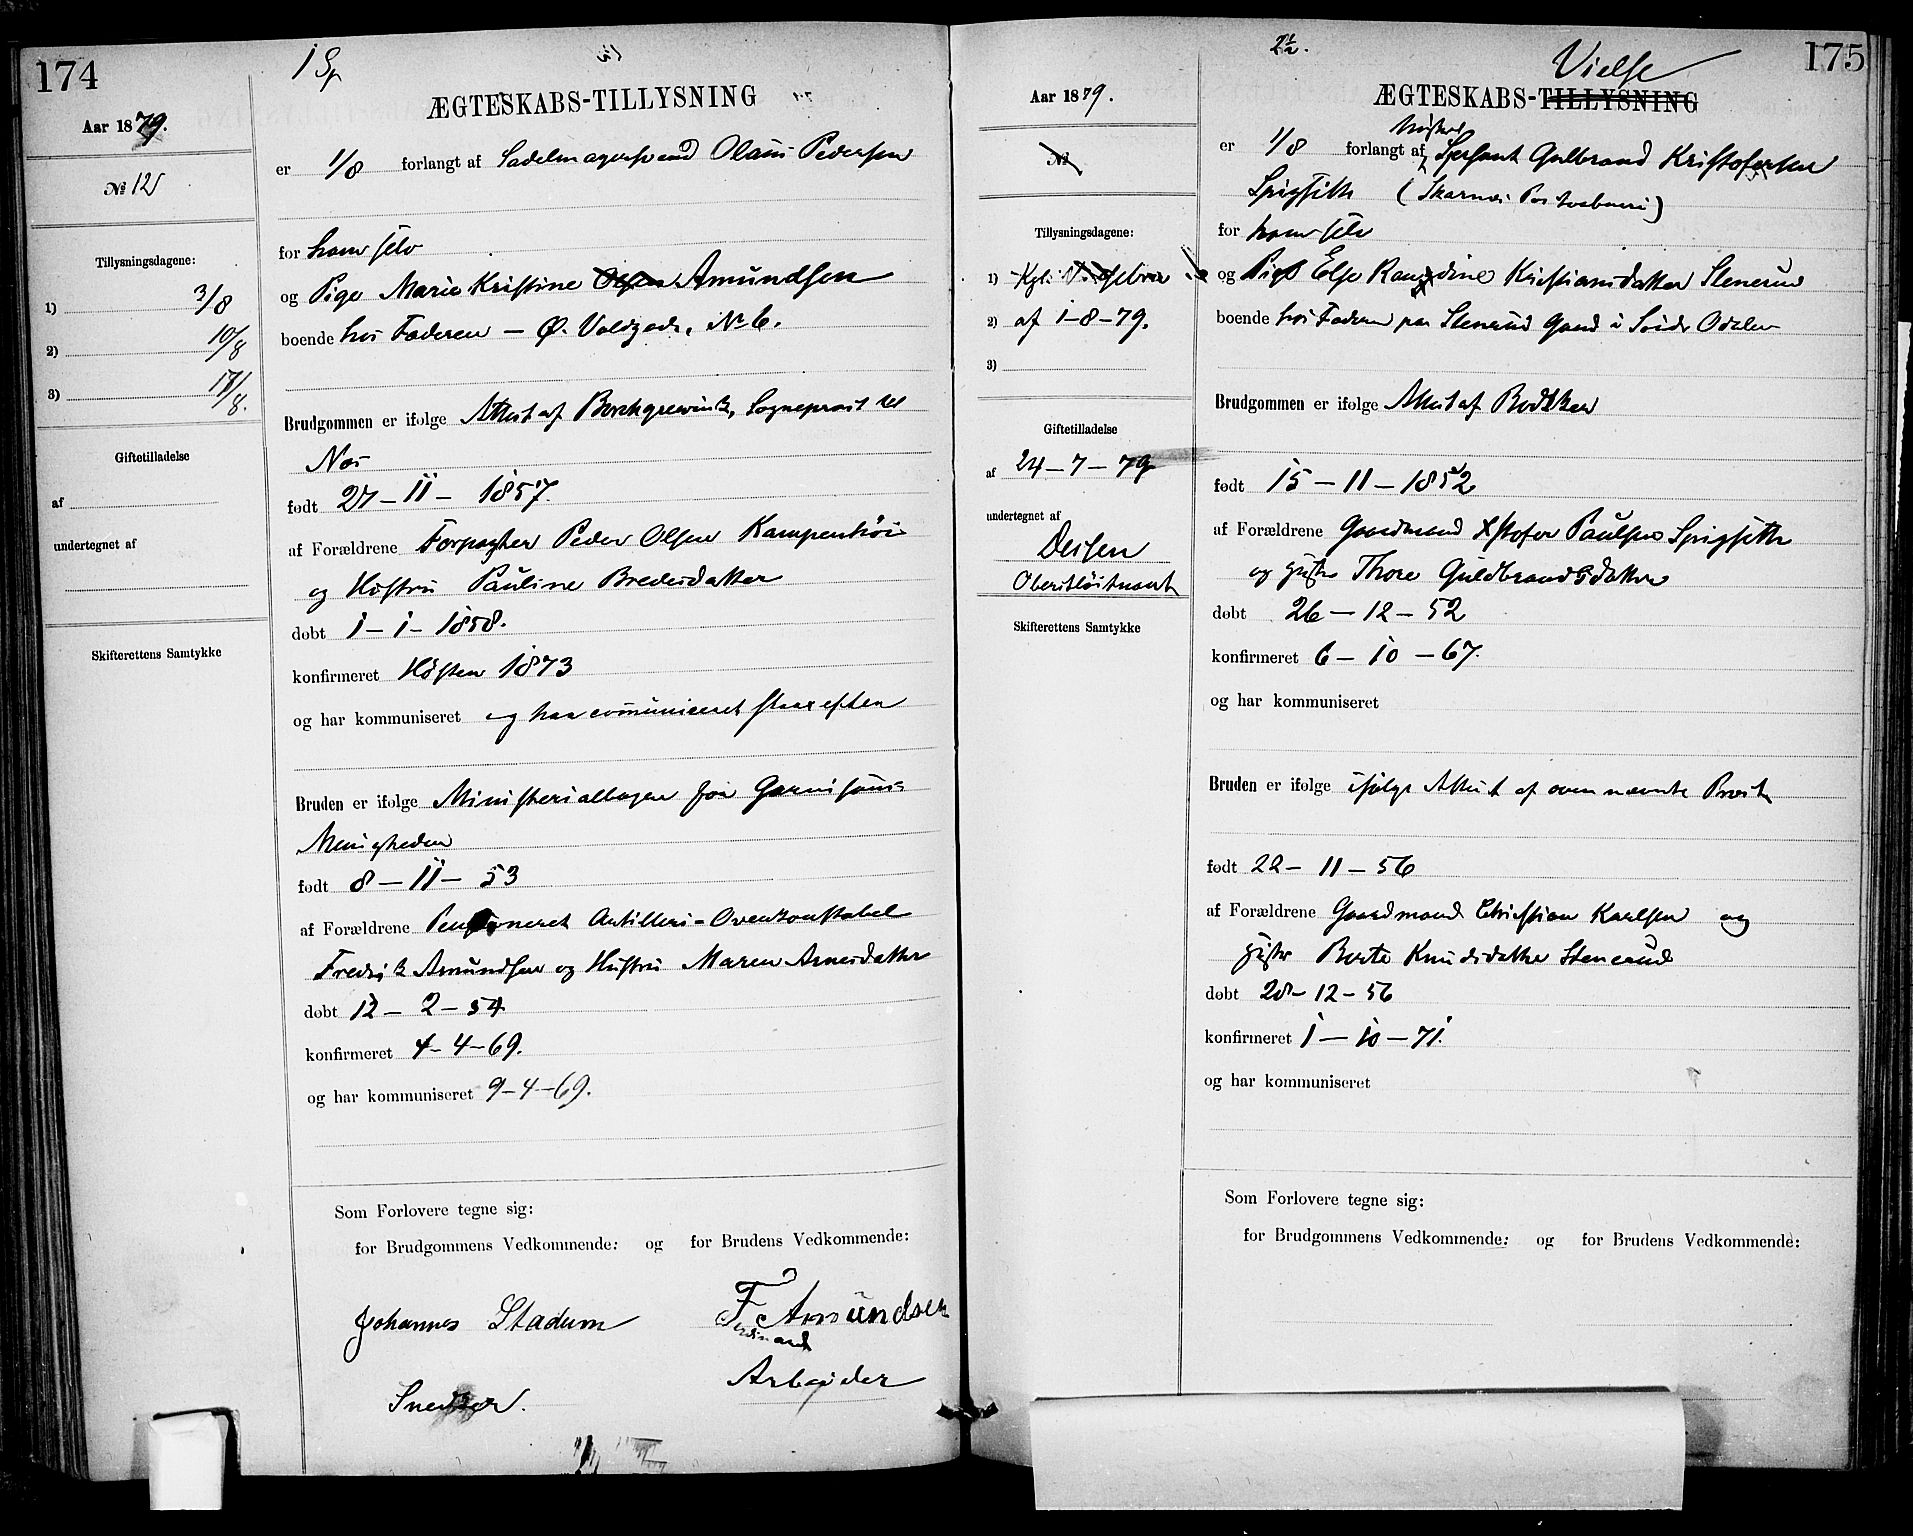 174
1 Sp
ÆGTESKABS-TILLYSNING
Aar 1879.
№ 12
Tillysningsdagene:
1) 3/8
2) 10/8
3) 17/8.
Giftetilladelse
af
undertegnet af
Skifterettens Samtykke
er 1/8 forlangt af Sadelmagersvend Olaus Pedersen
for ham selv
og Pige Marie Kristine Olsen Amundsen
boende hos Faderen – Ø. Voldgade, № 6.
Brudgommen er ifølge Attest af Borchgrevink, Sogneprest til
Næs
født 27 – 11 – 1857.
af Forældrene Forpagter Peder Olsen Kampenhøi
og Hustru Pauline Bredesdatter
døbt 1 – 1 – 1858.
konfirmeret Høsten 1873
og har kommuniseret og har communiceret strax efter
Bruden er ifølge Ministerialbogen for Garnisons-
Menigheden
født 8 – 11 – 53
af Forældrene Pensioneret Artilleri-Overkonstabel
Fredrik Amundsen og Hustru Maren Arnesdatter
døbt 12 – 2 – 54
konfirmeret 4 – 4 – 69.
og har kommuniseret 9 – 4 – 69.
Som Forlovere tegne sig:
for Brudgommens Vedkommende: og for Brudens Vedkommende:
Johannes Stadum F. Amundsen
Ferdinand
Snedker. Arbeider
2½.
Vielse
175
ÆGTESKABS-TILLYSNING
Aar 1879.
№
Tillysningsdagene:
1) Kgl.
2) af 1 – 8 – 79.
3)
Giftetilladelse
af 24 – 7 – 79
undertegnet af
Oberstløitnant
Skifterettens Samtykke
er 1/8 forlangt af Sersant Gulbrand Kristofersen
Spigseth (Skarnes Postaabneri)
for ham selv
og Pige Else Randine Kristiansdatter Stenerud
boende hos Faderen paa Stenerud Gaard i Søndre Odalen
Brudgommen er ifølge Attest af
født 15 – 11 – 1852
af Forældrene Gaardmand Xstofer Paulsen Spigseth
og Hustru Thore Guldbrandsdatter
døbt 26 – 12 – 52
konfirmeret 6 – 10 – 67.
og har kommuniseret
Bruden er ifølge ifølge Attest af ovennævnte Prest
født 22 – 11 – 56
af Forældrene Gaardmand Christian Karlsen og
Hustru Berte Knudsdatter Stenerud
døbt 28 – 12 – 56
konfirmeret 1 – 10 – 71.
og har kommuniseret
Som Forlovere tegne sig:
for Brudgommens Vedkommende: og for Brudens Vedkommende: